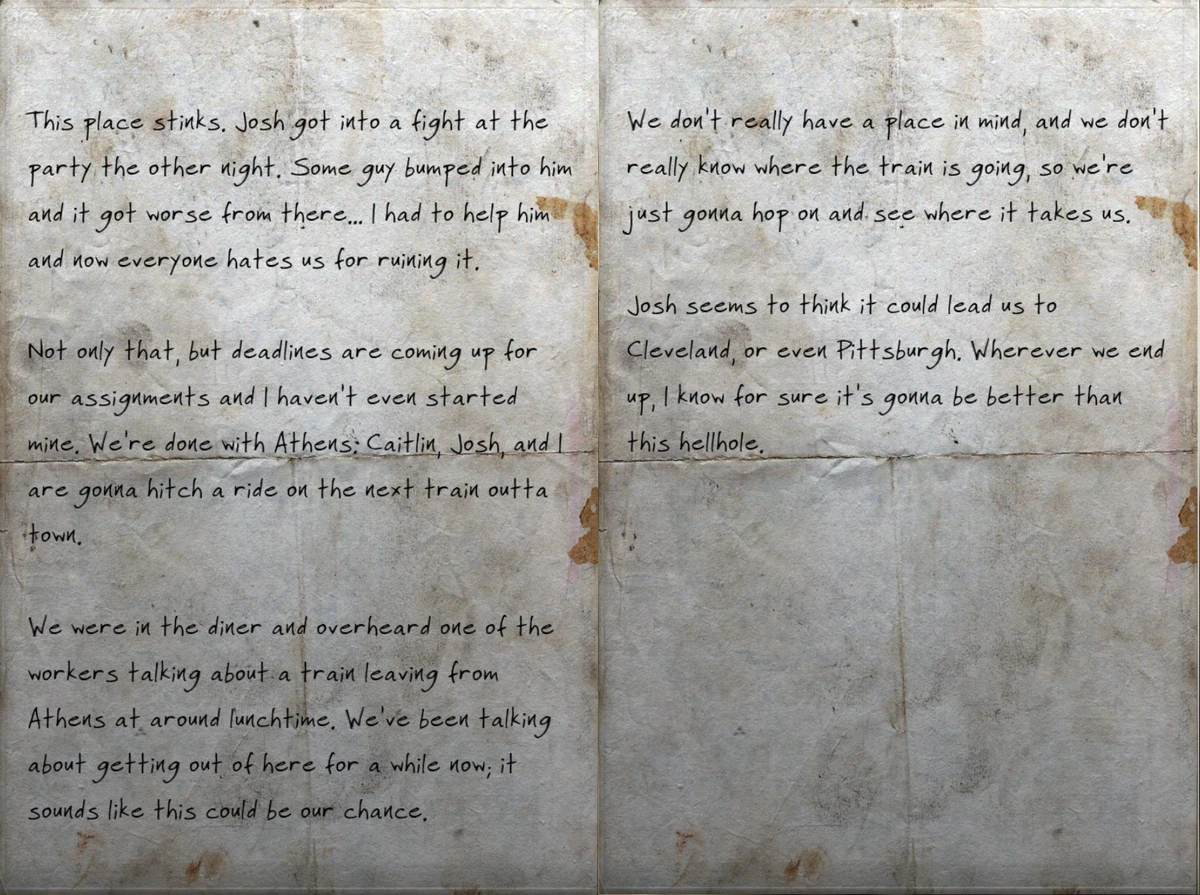 This place stinks. Josh got into a fight at the
party the other night. Some guy bumped into him
and it got worse from there... I had to help him
and now everyone hates us for ruining it.
Not only that, but deadlines are coming up for
our assignments and I haven't even started
mine. We're done with Athens: Caitlin, Josh, and I
are gonna hitch a ride on the next train outta
town.
We were in the diner and overheard one of the
workers talking about a train leaving from
Athens at around lunchtime. We've been talking
about getting out of here for a while now; it
sounds like this could be our chance.
We don't really have a place in mind, and we don't
really know where the train is going, so we're
just gonna hop on and see where it takes us.
Josh seems to think it could lead us to
Cleveland, or even Pittsburgh. Wherever we end
up, I know for sure it's gonna be better than
this hellhole.